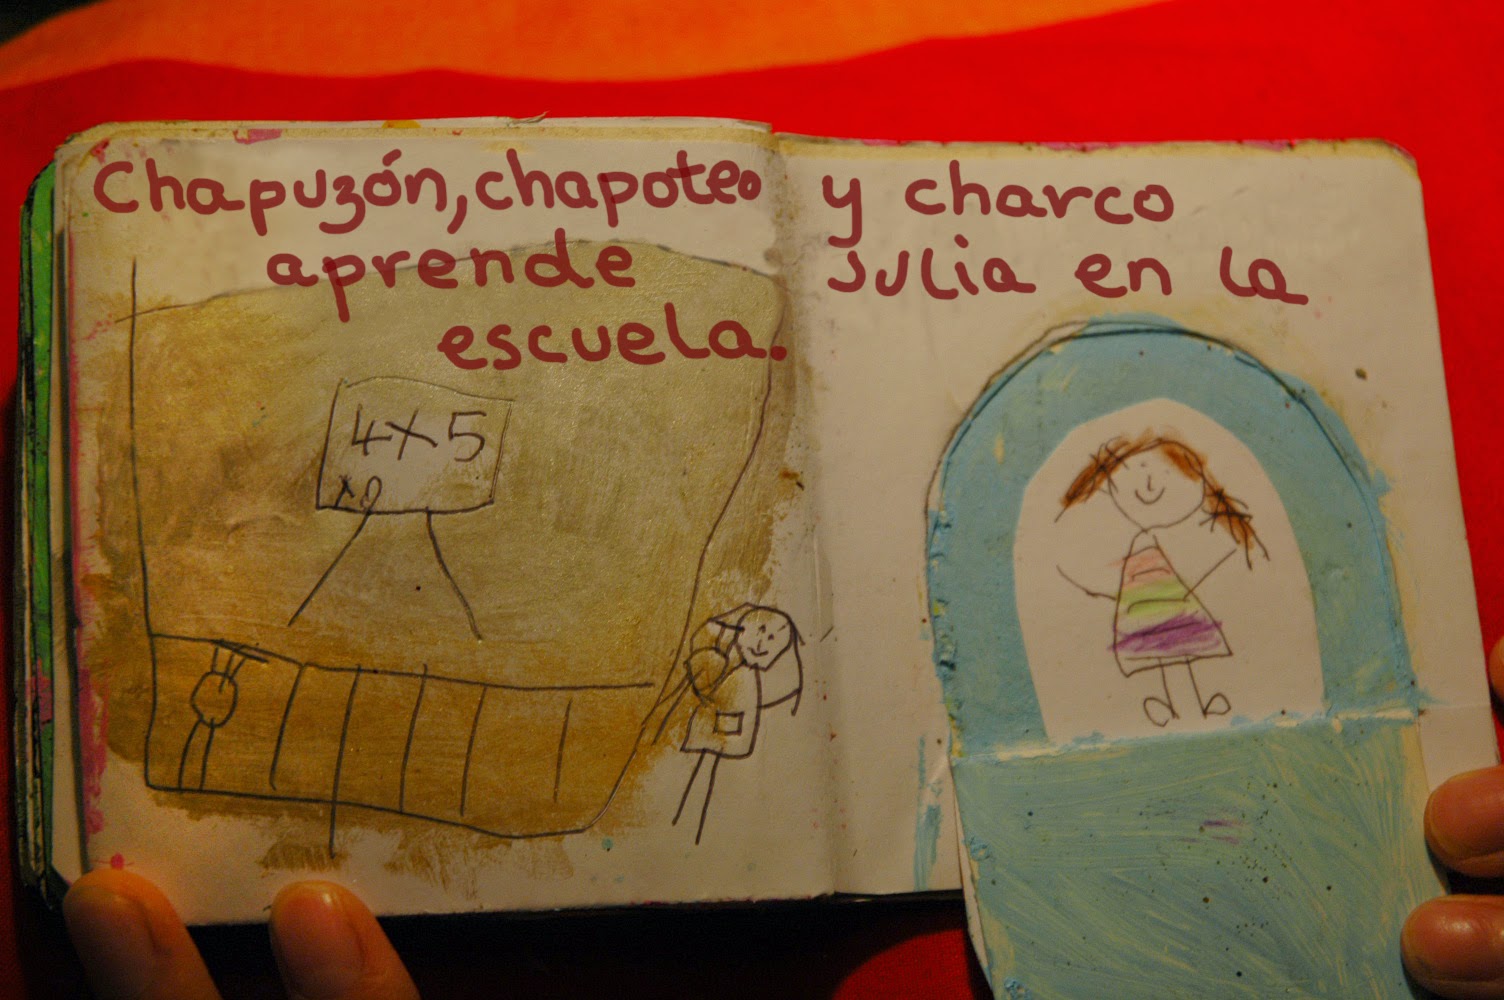 Chapuzón, chapoteo y charco
aprende Julia en la
escuela.
4x5